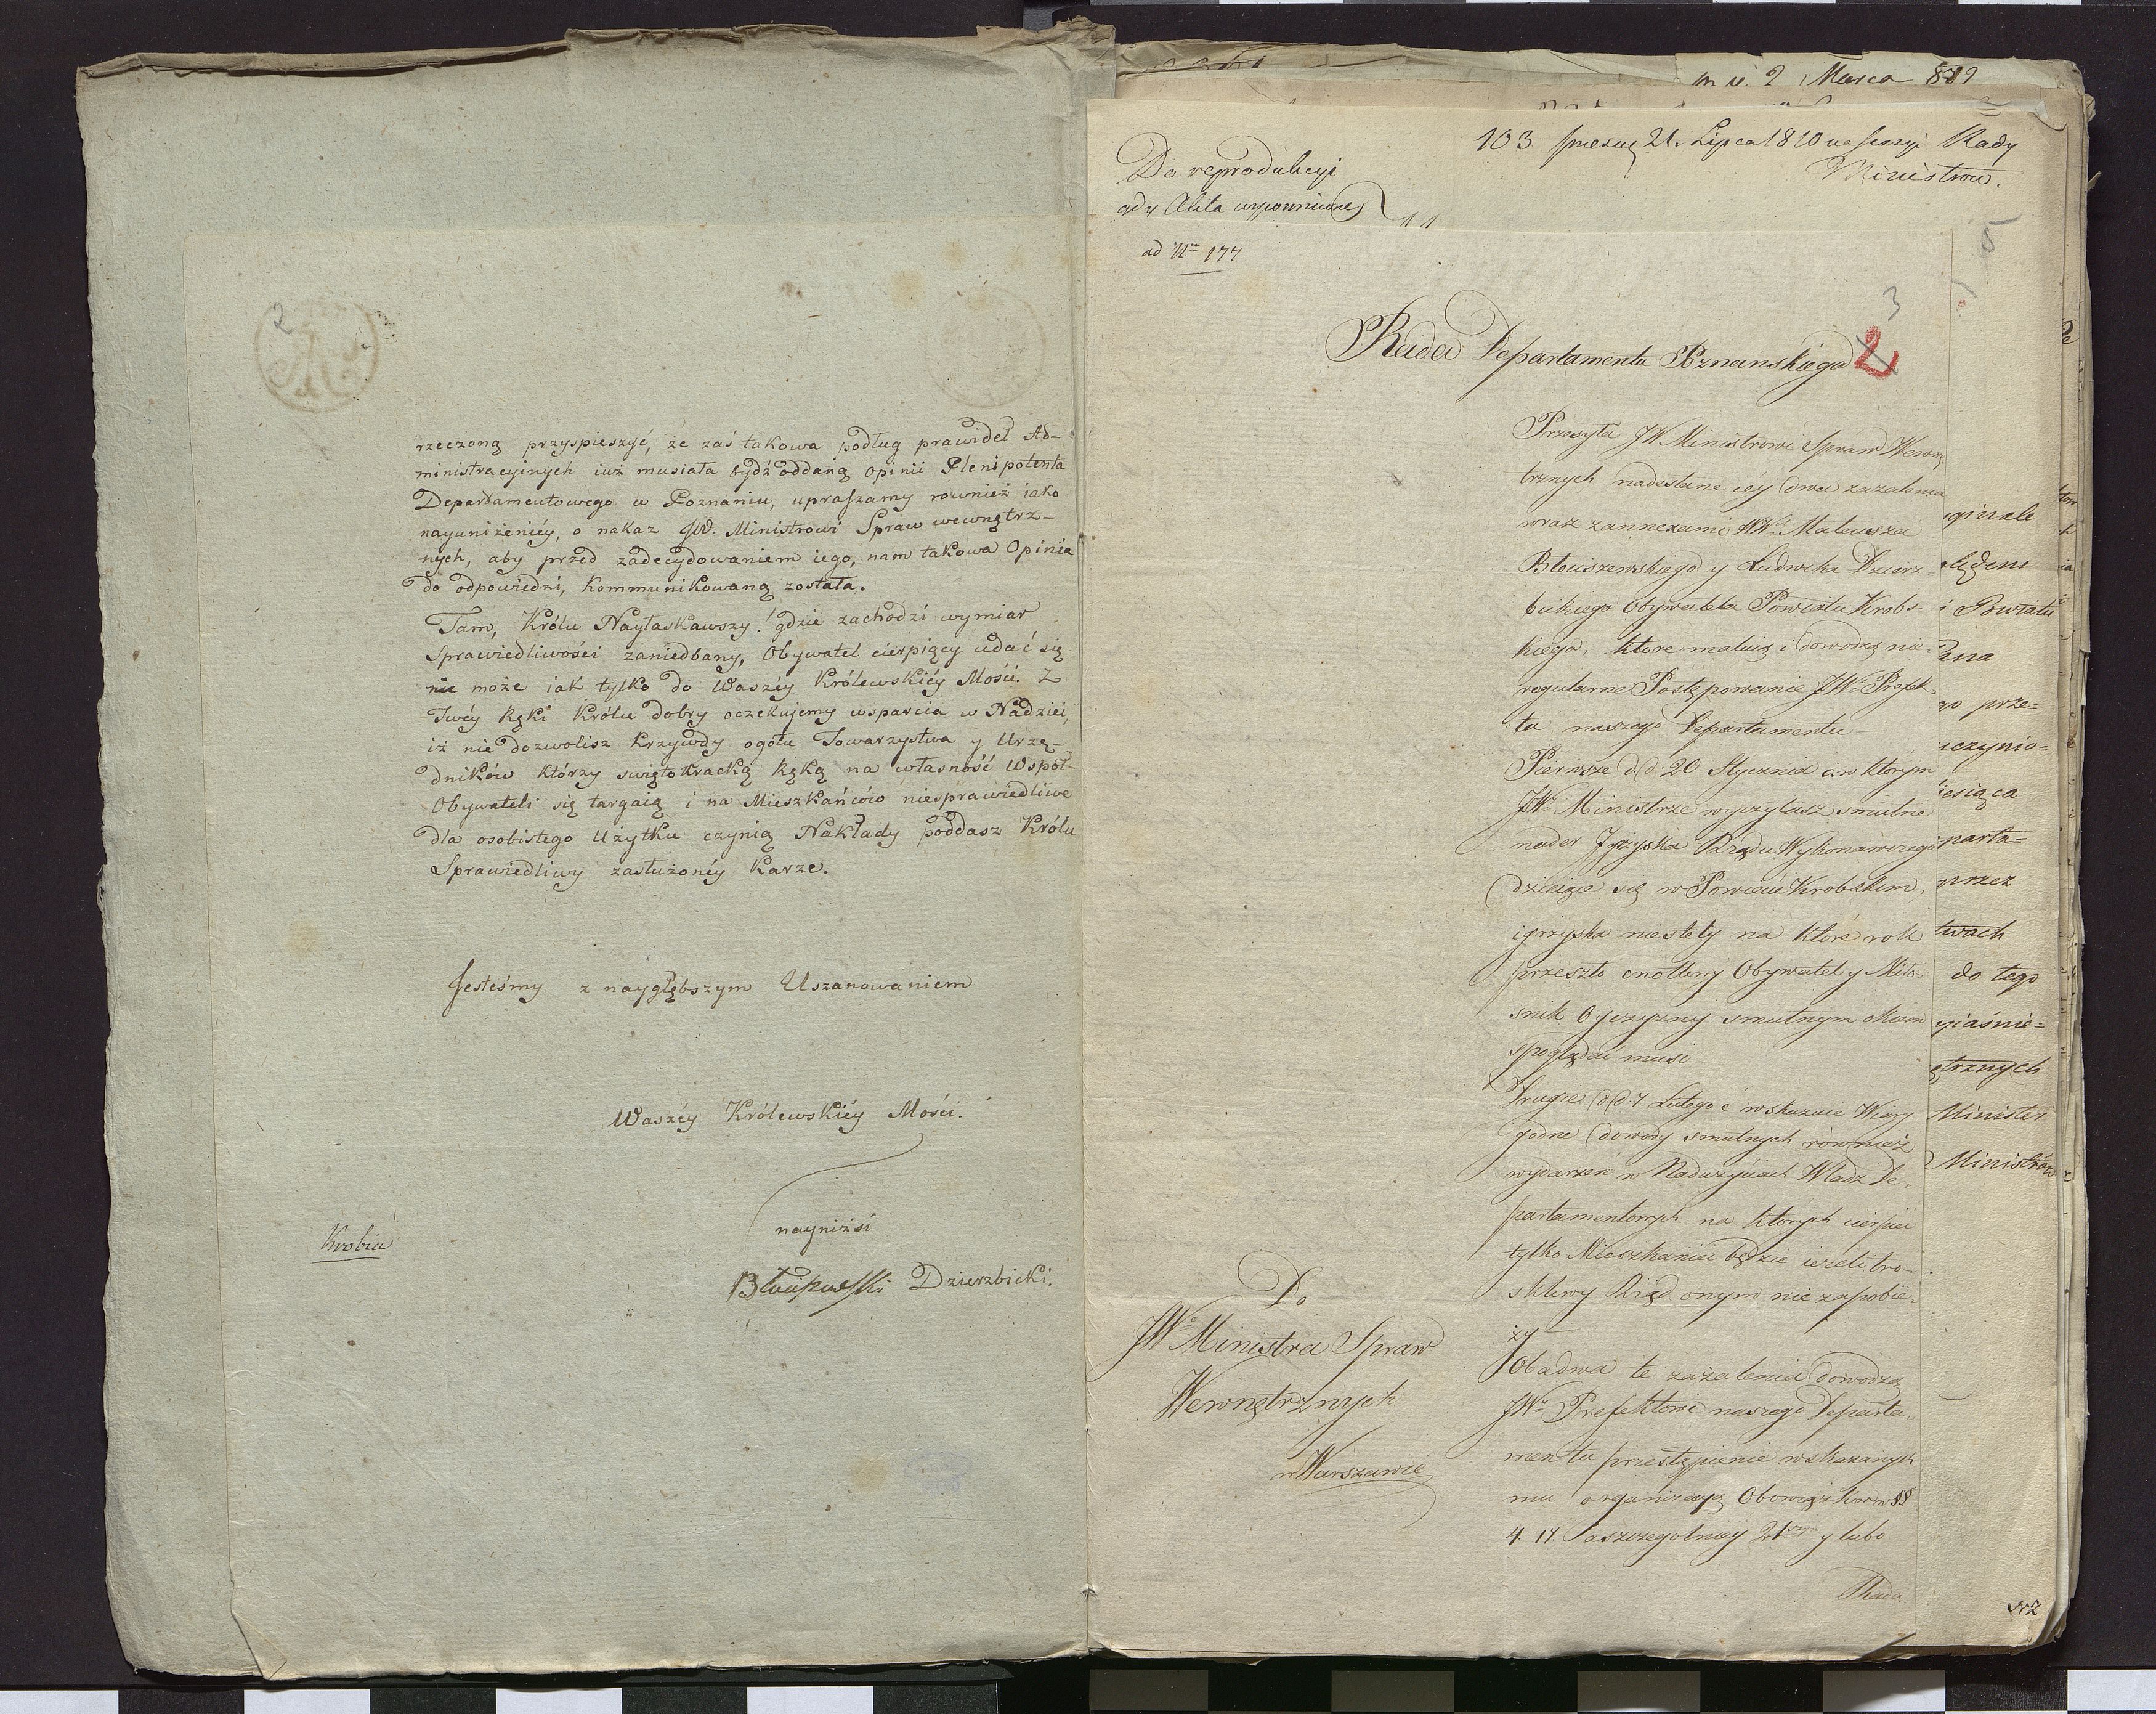 rzeczoną przyspieszyć, że zaś takowa podług prawideł Ad-
ministracyinych iuż musiała bydź oddaną Opinii Plenipotenta
Departamentowego w Poznaniu, upraszamy rownież iako
nayuniżeniéy, o nakaz JW. Ministrowi Spraw wewnętrz-
nych, aby przed zadecydowaniem iego, nam takowa Opinia
do odpowiedzi, kommunikowaną została.
Tam, Królu Nayłaskawszy! gdzie zachodzi wymiar
Sprawiedliwości zaniedbany, Obywatel cierpiący udać się
nie może iak tylko do Waszéy Królewskiéy Mości. Z
Twéy Ręki Królu dobry oczekujemy wsparcia w Nadziei,
iż nie dozwolisz Krzywdy ogółu Towarzystwa y Urzę-
dników którzy swiętokracką Ręką na własność Wspoł-
Obywateli się targaią i na Mieszkańców niesprawiedliwe
dla osobistego Użytku czynią Nakłady poddasz Królu
Sprawiedliwy zasłużonéy Karze.
Jesteśmy z naygłębszym Uszanowaniem
Waszéy Królewskiéy Mości.
nayniżsi
Dzierzbicki.
Krobia
2
Marca
103 21. Lipca 1810 na Sessyi Rady
Ministrow.
Do reprodukcyi
gdy Akta
ad Nr 177
5
3
2
Rada Departamentu Poznańskiego
Przesyła JW Ministrowi Spraw Wewnę
trznych nadesłane iéy dwa zażalenia
wraz z annexami WW. Mateusza
Błociszewskiego y Ludwika Dzierz-
bickiego Obywatela Powiatu Krobs-
kiego, które maluią i dowodzą nie-
regularne Postępowanie JW. Prefek-
ta naszego Departamentu
Pierwsze d.d. 20 Stycznia c. w którym
JW. Ministrze wyczytasz smutne
nader Igrzyska Rządu Wykonawczego
dzieiące się w Powiecie Krobskim,
igrzyska niestety na które rok
przeszło cnotliwy Obywatel y Miło-
snik Oyczyzny smutnym okiem
spoglądać musi
Drugie d.d. 7 Lutego c. wskazuie Wiary
godne dowody smutnych rownież
wydarzeń w Nadużyciach Władz De-
partamentowych na których cierpieć
tylko Mieszkaniec będzie ieżeli tro-
skliwy Rząd onym nie zapobie-
ży
Obadwa te zażalenia dowodzą
JW. Prefektowi naszego Departa-
mentu przestąpienie wskazanych
mu organizacyą Obowiązkow w §§
4. 17. a szczegolniey 21 y lubo
Rada
Do
JW. Ministra Spraw
Wewnętrznych
w Warszawie
ginale
lędem
i Powiatu
ana
go prze-
uczynio-
iesiąca
parta-
przez
twach
do tego
yiaśnie-
ętrznych
Minister
Ministrów